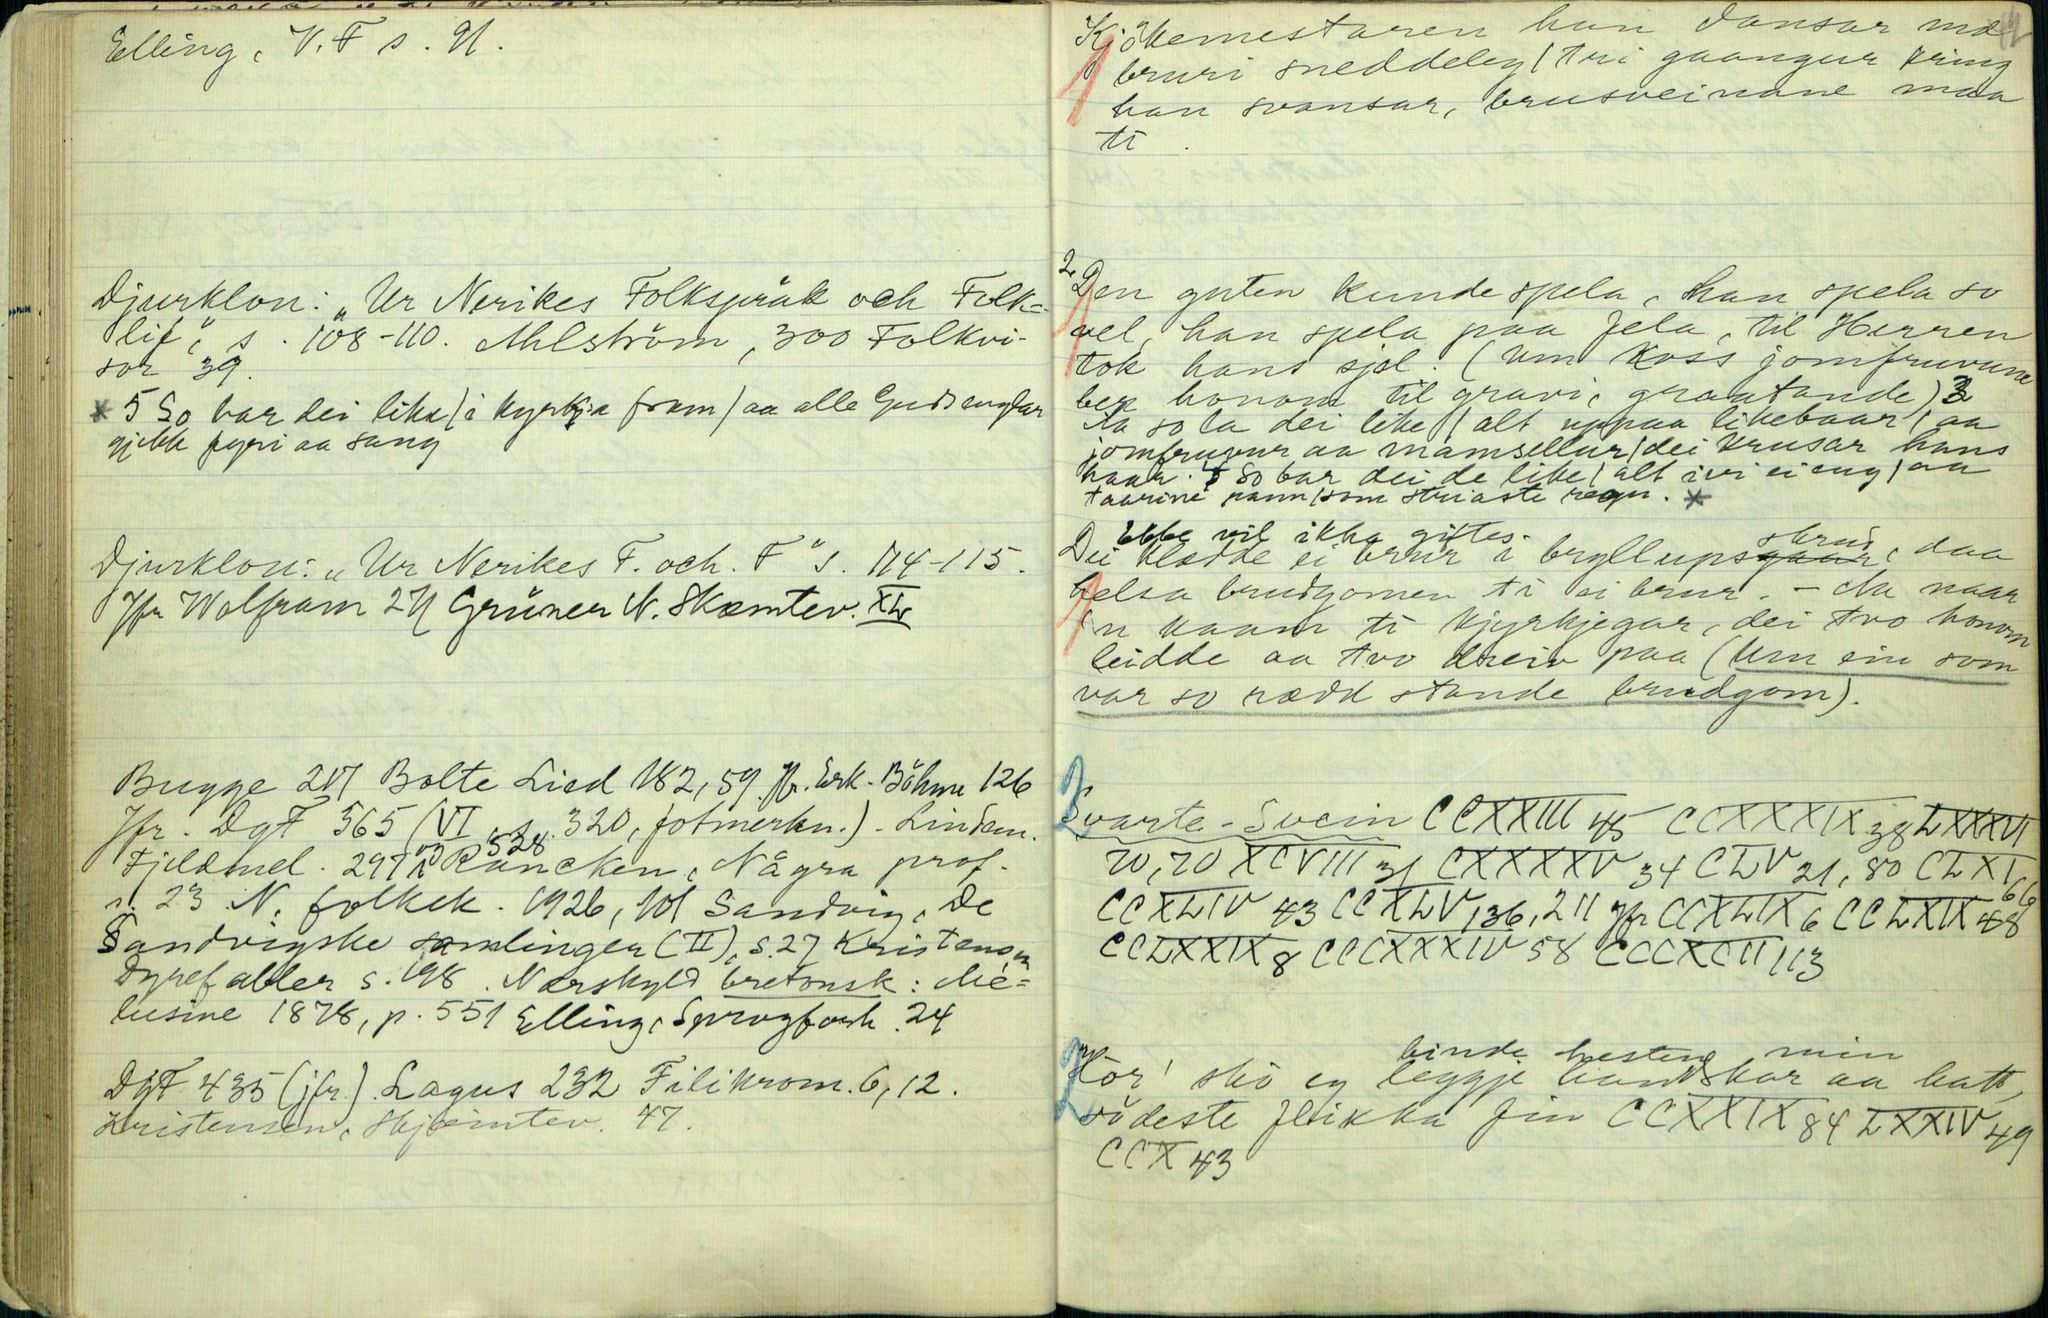 Elling, V. F s. 91.
Djurklon: „Ur Nerikes Folkspråk och Folk=
lif“, s. 108-110. Ahlström, 300 Folkvi-
sor 39.
* 5 So bar dei like / i kyrkja fram / aa alle Guds englar
gjekk fyri aa sang
Djurklon: „Ur Nerikes F. och. F“ s. 114-115.
Jfr Wolfram 271 Grüner N. Skæmtev. XLV
Bugge 217 Bolte Lied 182, 59 Jfr. Erk-Böhme 126
Jfr. DgF 565 (VI, s. 320, fotmerkn.) - Lindem.
528
Fjeldmel. 297 Rancken, Några prof.
n. 23 N. folkek. 1926, 101 Sandvig, De
Sandvigske samlinger (II), s. 27 Kristensen
Dyrefabler s. 198. Nærskyld bretonsk: Mé=
lusine 1878, p. 551 Elling, Sprogforh. 24
DgF 435 (jfr.) Lagus 232 Filikrom. 6, 12.
Kristensen, Skjæmtev. 47.
Kjökemestaren han dansar med
bruri sneddeleg / tri gaangur kring
han svansar, brusveinane maa
ti.
2. Den guten kunde spela, han spela so
vel, han spela paa fela, til Herren
tok hans sjel. (Um koss jomfruvune
ber honom til gravi, graatande) 3
Aa so la dei like / alt uppaa likebaar / aa
jomfruvur aa mamsellur / dei krusar hans
haar. 4 So bar dei de like / alt ivi ei eng / aa
taarine rann / som striaste regn. *
Ebbe vil ikke giftes.
skrud
Dei klædde ei brur i bryllupsgaar, daa
helsa brudgomen ti ei brur. - Aa naar
'n kaam ti kjyrkjegar, dei tvo honom
leidde aa tvo dreiv paa (Um ein som
var so rædd stande brudgom).
Svarte-Svein CCXXIII 45 CCXXXIX 38 LXXXVI
20, 70 XCVIII 31 CXXXXV 34 CLV 21, 80 CLXI 66
CCXLIV 43 CCXLV 136, 211 Jfr CCXLIX 6 CCLXIX 48
CCLXXIX 8 CCCXXXIV 58 CCCXCII 113
binde hesten min
Hör' skö eg leggje handskar aa hatt,
södeste flikka fin CCXXIX 84 LXXIV 49
CCX 43